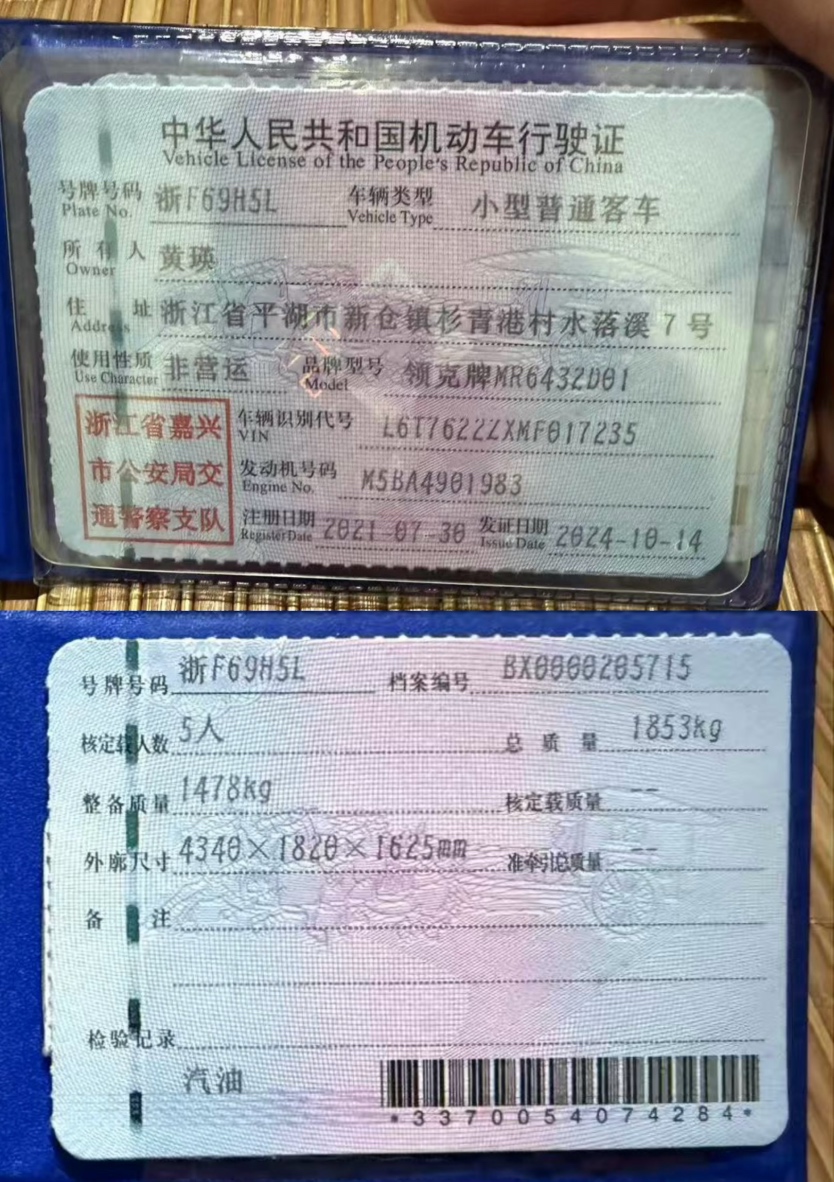 中华人民共和国机动车行驶证
Vehicle License of the People's Republic of China
号牌号码 浙F69H5L 车辆类型 小型普通客车
Plate No. Vehicle Type
所有人 黄瑛
Owner
住址 浙江省平湖市新仓镇杉青港村水落溪7号
Address
使用性质 非营运 品牌型号 领克牌MR6432D01
Use Character Model
浙江省嘉兴
市公安局交
通警察支队
车辆识别代号 L6T7622ZXMF017235
VIN
发动机号码 M5BA4901983
Engine No.
注册日期 2021-07-30 发证日期 2024-10-14
Register Date Issue Date
号牌号码 浙F69H5L 档案编号 BX0000205715
核定载人数 5人 总质量 1853kg
整备质量 1478kg 核定载质量 --
外廓尺寸 4340×1820×1625mm 准牵引总质量 --
备注
检验记录
汽油
*3370054074284*